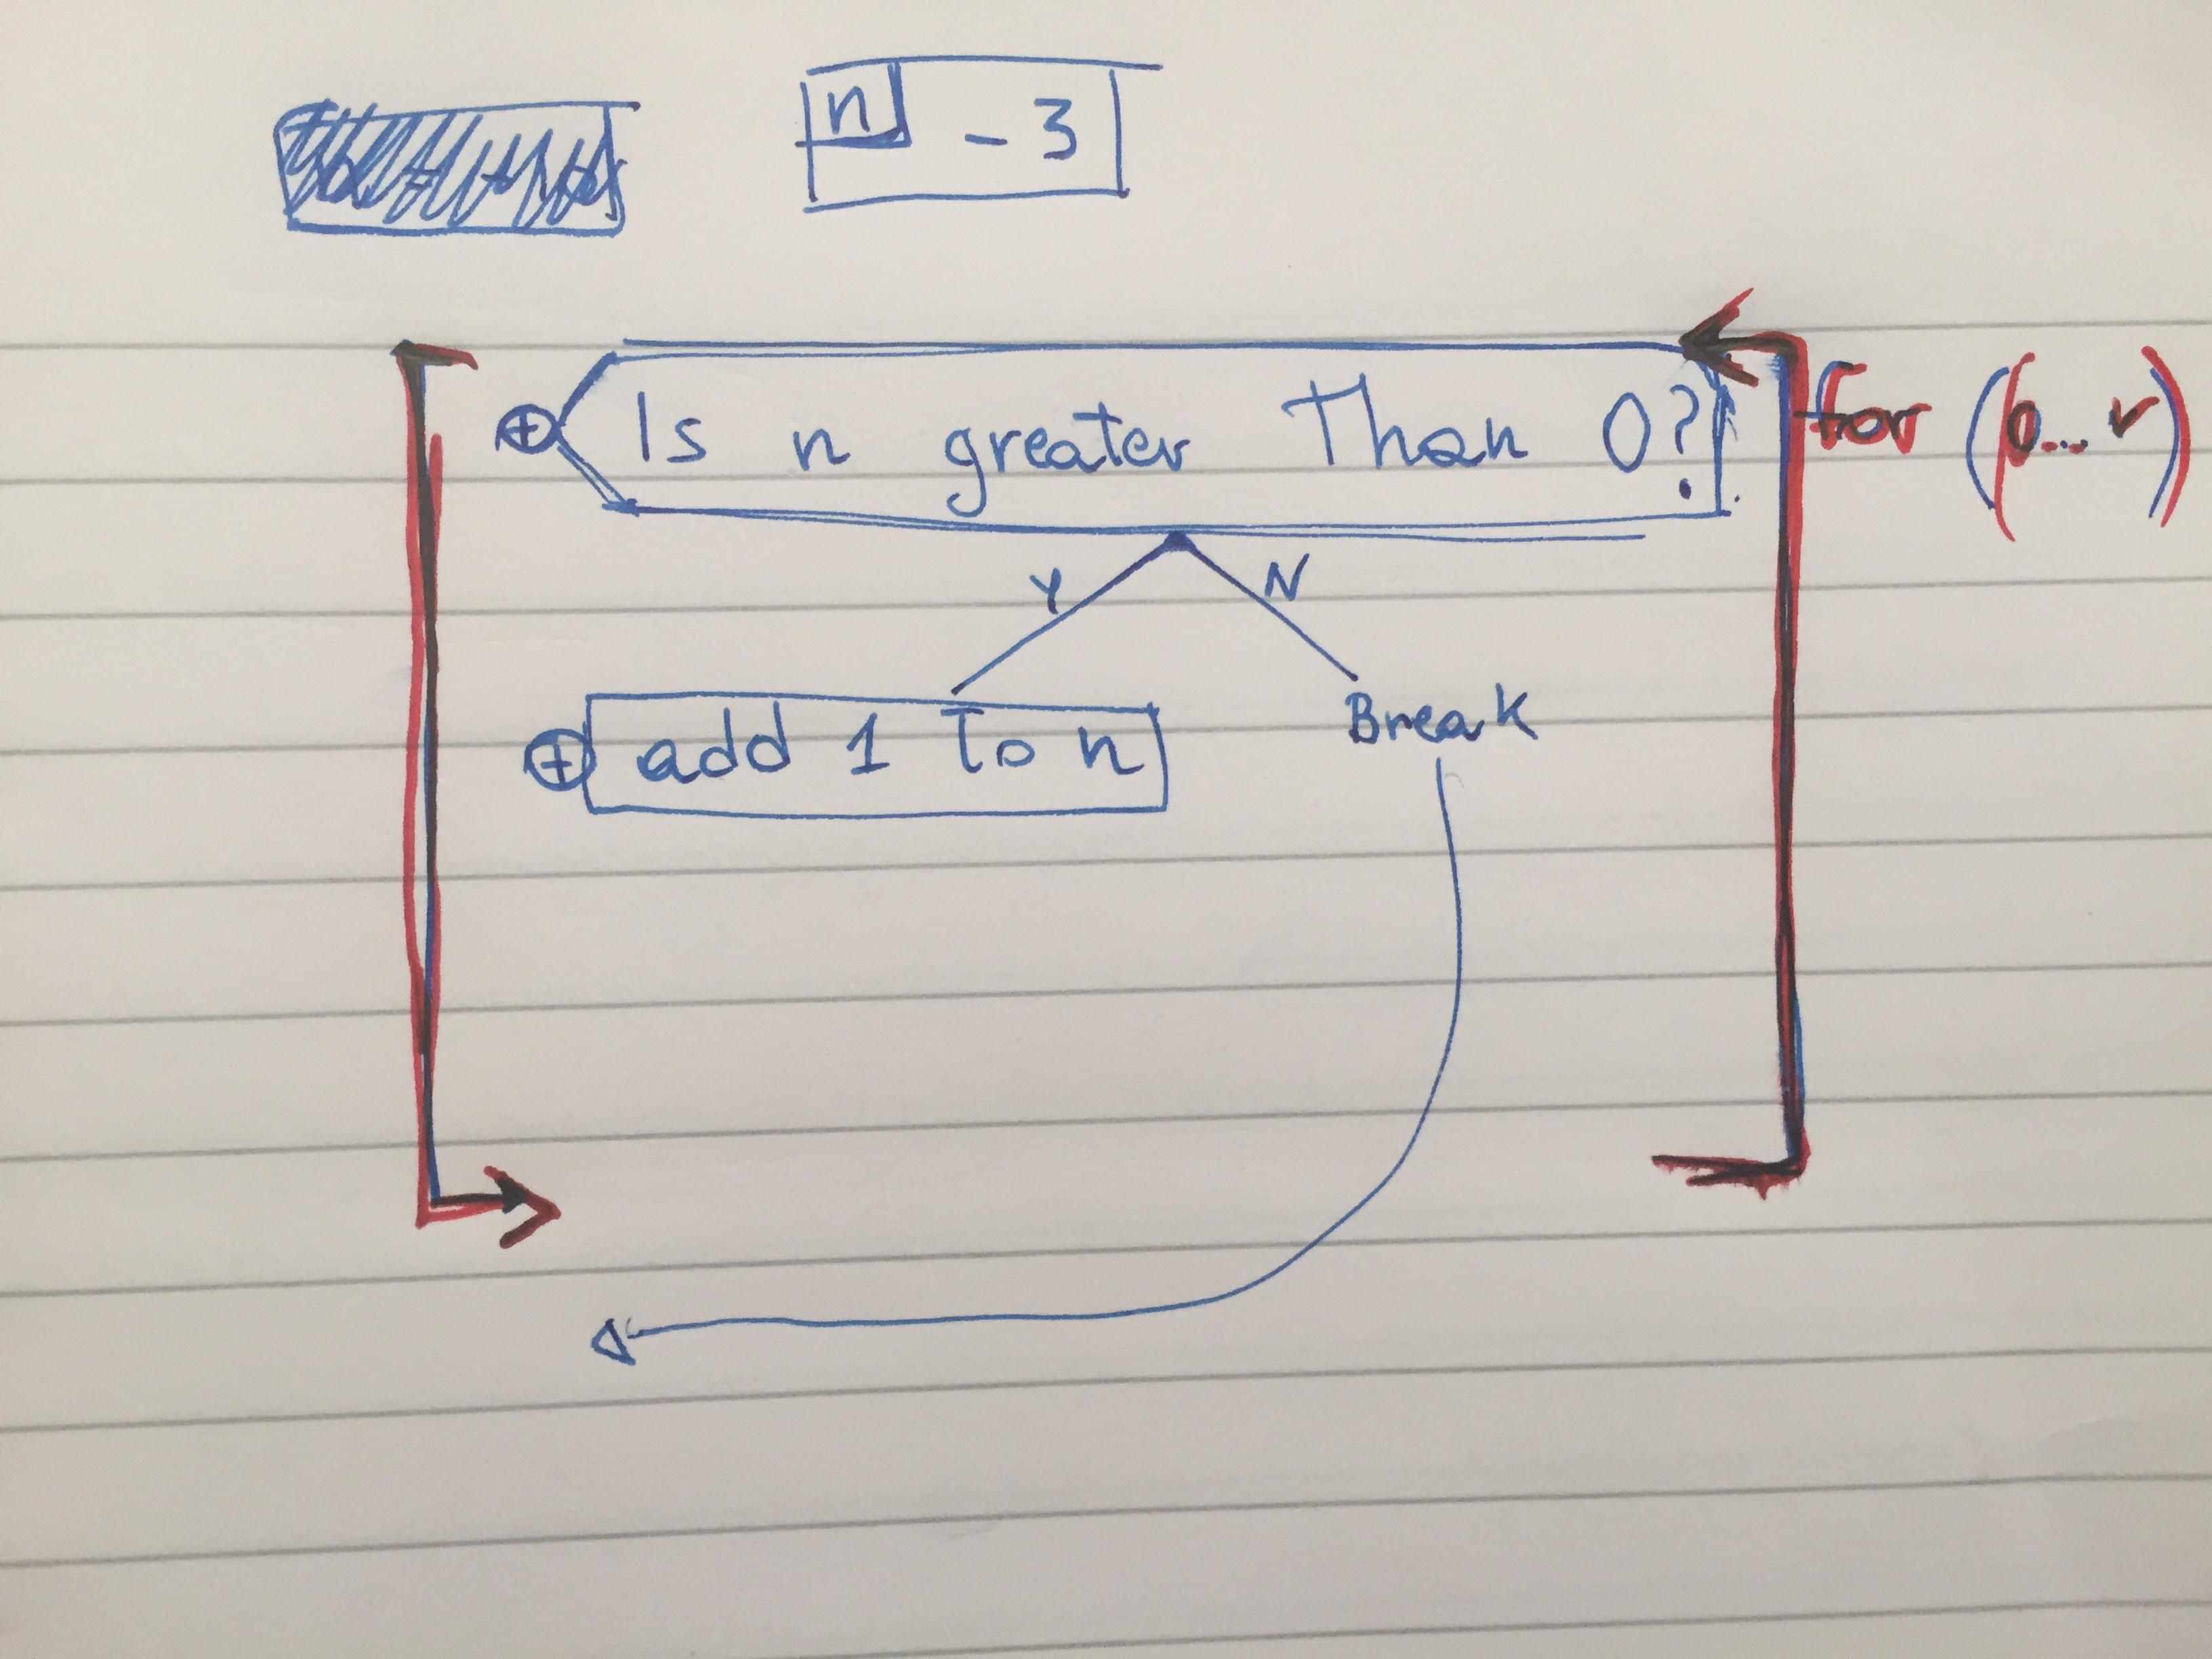 n - 3
Is n greater Than 0?
for (0... r)
Y N
add 1 To n
Break